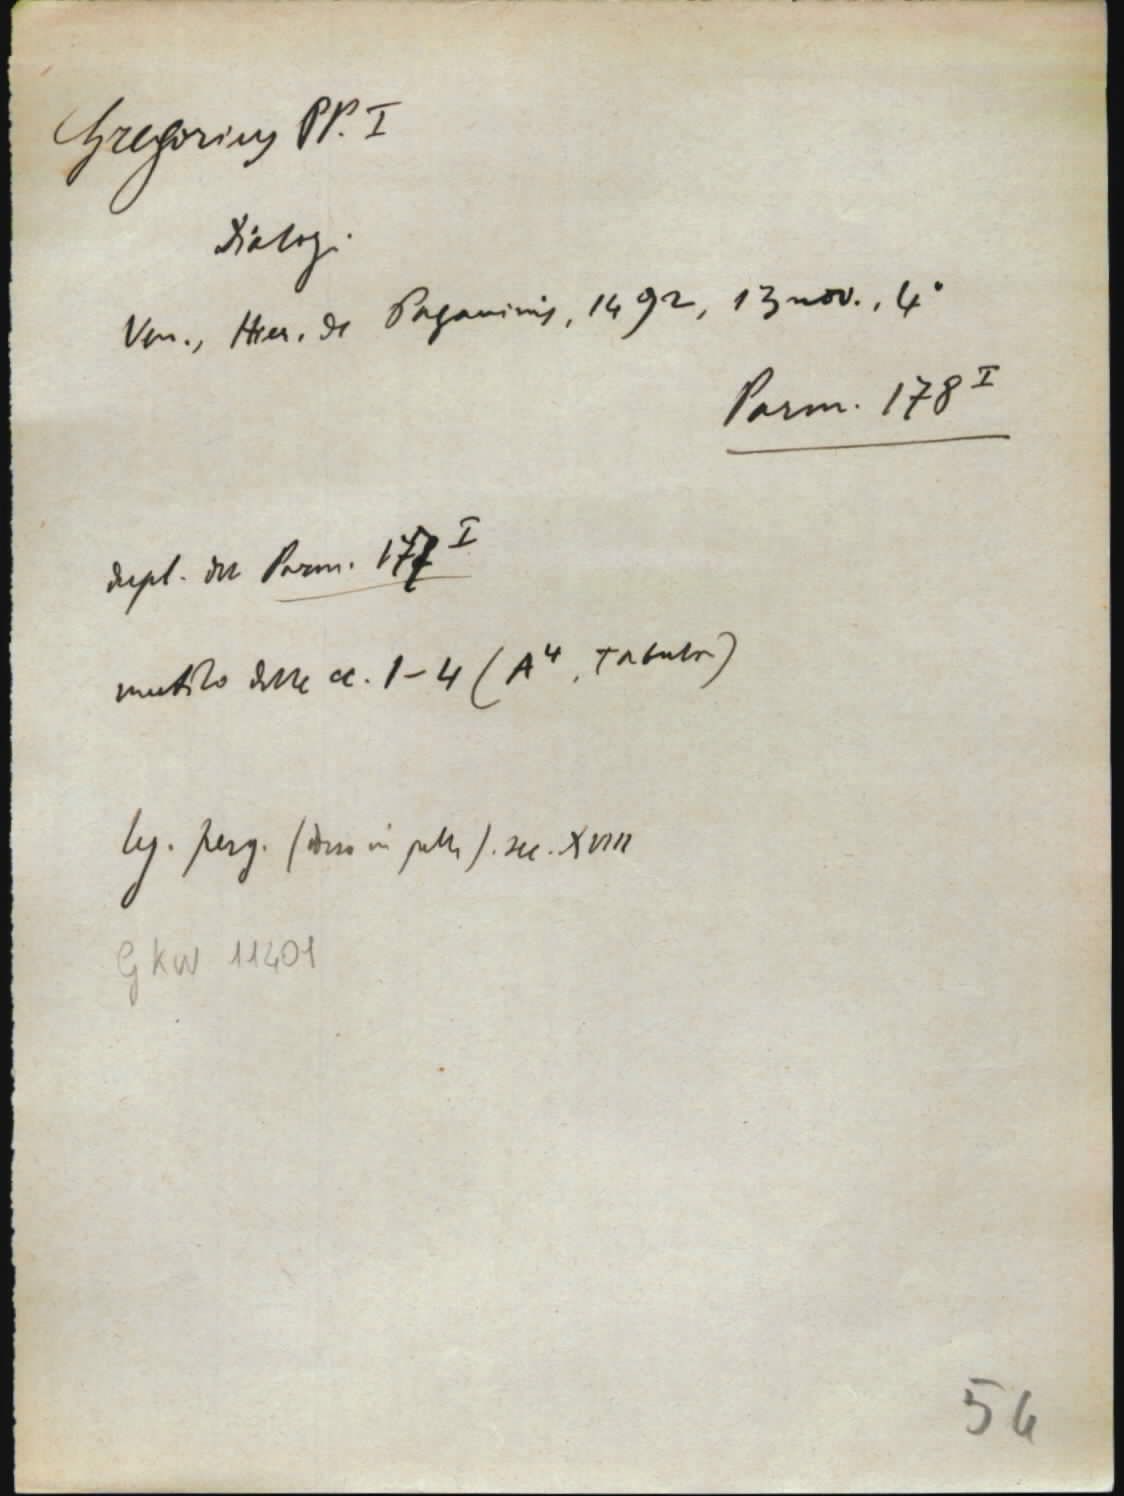 Gregorius PP. I
Dialogi.
Ven., Hier. de Paganinis, 1492, 13 nov., 4°
Parm. 178 I
dupl. del Parm. 177 I
mutilo delle cc. 1-4 (A⁴, tabula)
leg. perg. (dorso in pelle). sec. XVIII
GKW 11401
54